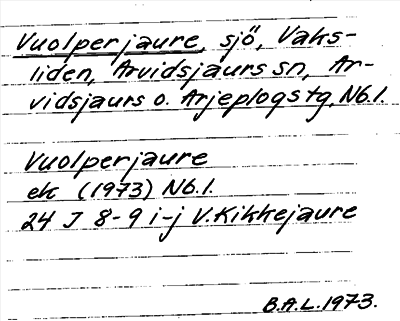 Vuolperjaure, sjö, Vaks-
liden, Arvidsjaurs sn, Ar-
vidsjaurs o. Arjeplogs tg, Nb.l.
Vuolperjaure
ek (1973) Nb.l.
24 J 8-9 i-j V. Kikkejaure
B.A.L. 1973.